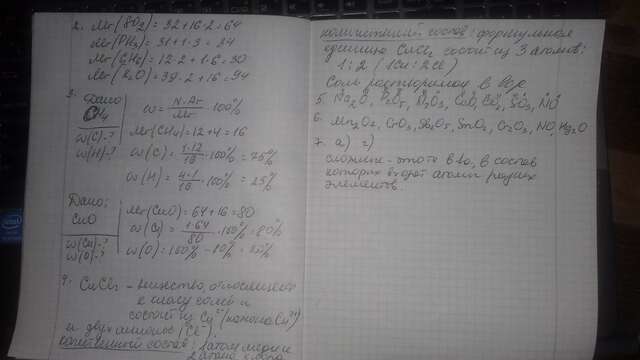 2. Mr(SO₂) = 32+16·2=64
Mr(PH₃) = 31+1·3 = 34
Mr(C₂H₆) = 12·2+1·6=30
Mr(K₂O) = 39·2+16=94
3. Дано:
CH₄
w(C)-?
w(H)-?
w = N·Ar/Mr · 100%
Mr(CH₄) = 12+4 = 16
w(C) = 1·12/16 · 100% = 75%
w(H) = 4·1/16 · 100% = 25%
Дано:
CuO
w(Cu)-?
w(O)-?
Mr(CuO) = 64+16=80
w(Cu) = 1·64/80 · 100% = 80%
w(O) = 100% - 80% = 20%
4. CuCl₂ - вещество, относящееся
к классу солей и
состоит из Cu²⁺ (катиона Cu²⁺)
и двух анионов (Cl⁻)
качественный состав: 1 атом меди и
2 атома хлора
количественный состав: формульная
единица CuCl₂ состоит из 3 атомов:
1:2 (1Cu : 2Cl)
Соль растворимая в
5. Na₂O, P₂O₅, SO₃, NO
6. Mn₂O₇, CrO₃, SnO₂, Cr₂O₃, NO, Hg₂O
7. а) г)
сложные - это те в-ва, в состав
которых входят атомы разных
элементов.
intel